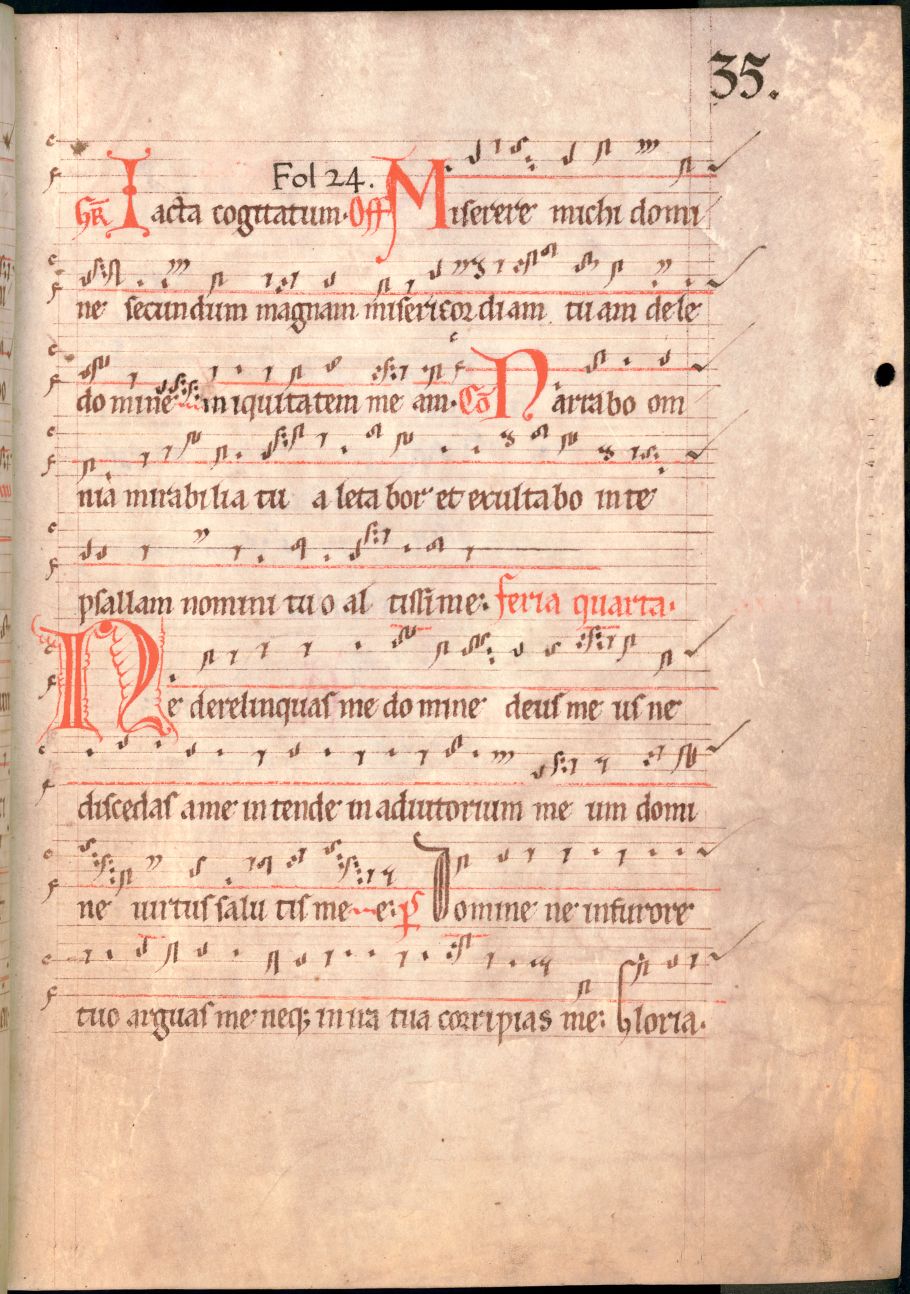 35.
Fol 24.
Gr̄ Iacta cogitatum. Off Miserere michi domi
ne secundum magnam misericordiam tuam dele
domine iniquitatem meam. Cō Narrabo om
nia mirabilia tua letabor et exultabo in te
psallam nomini tuo altissime: feria quarta.
Ne derelinquas me domine deus meus ne
discedas a me intende in adiutorium meum domi
ne uirtus salutis mee: p̄s Domine ne in furore
tuo arguas me neq; in ira tua corripias me: Gloria.